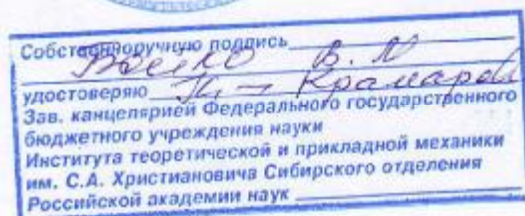 Собственноручную подпись
Бойко В. М
удостоверяю
Зав. канцелярией Федерального государственного
бюджетного учреждения науки
Института теоретической и прикладной механики
им. С.А. Христиановича Сибирского отделения
Российской академии наук